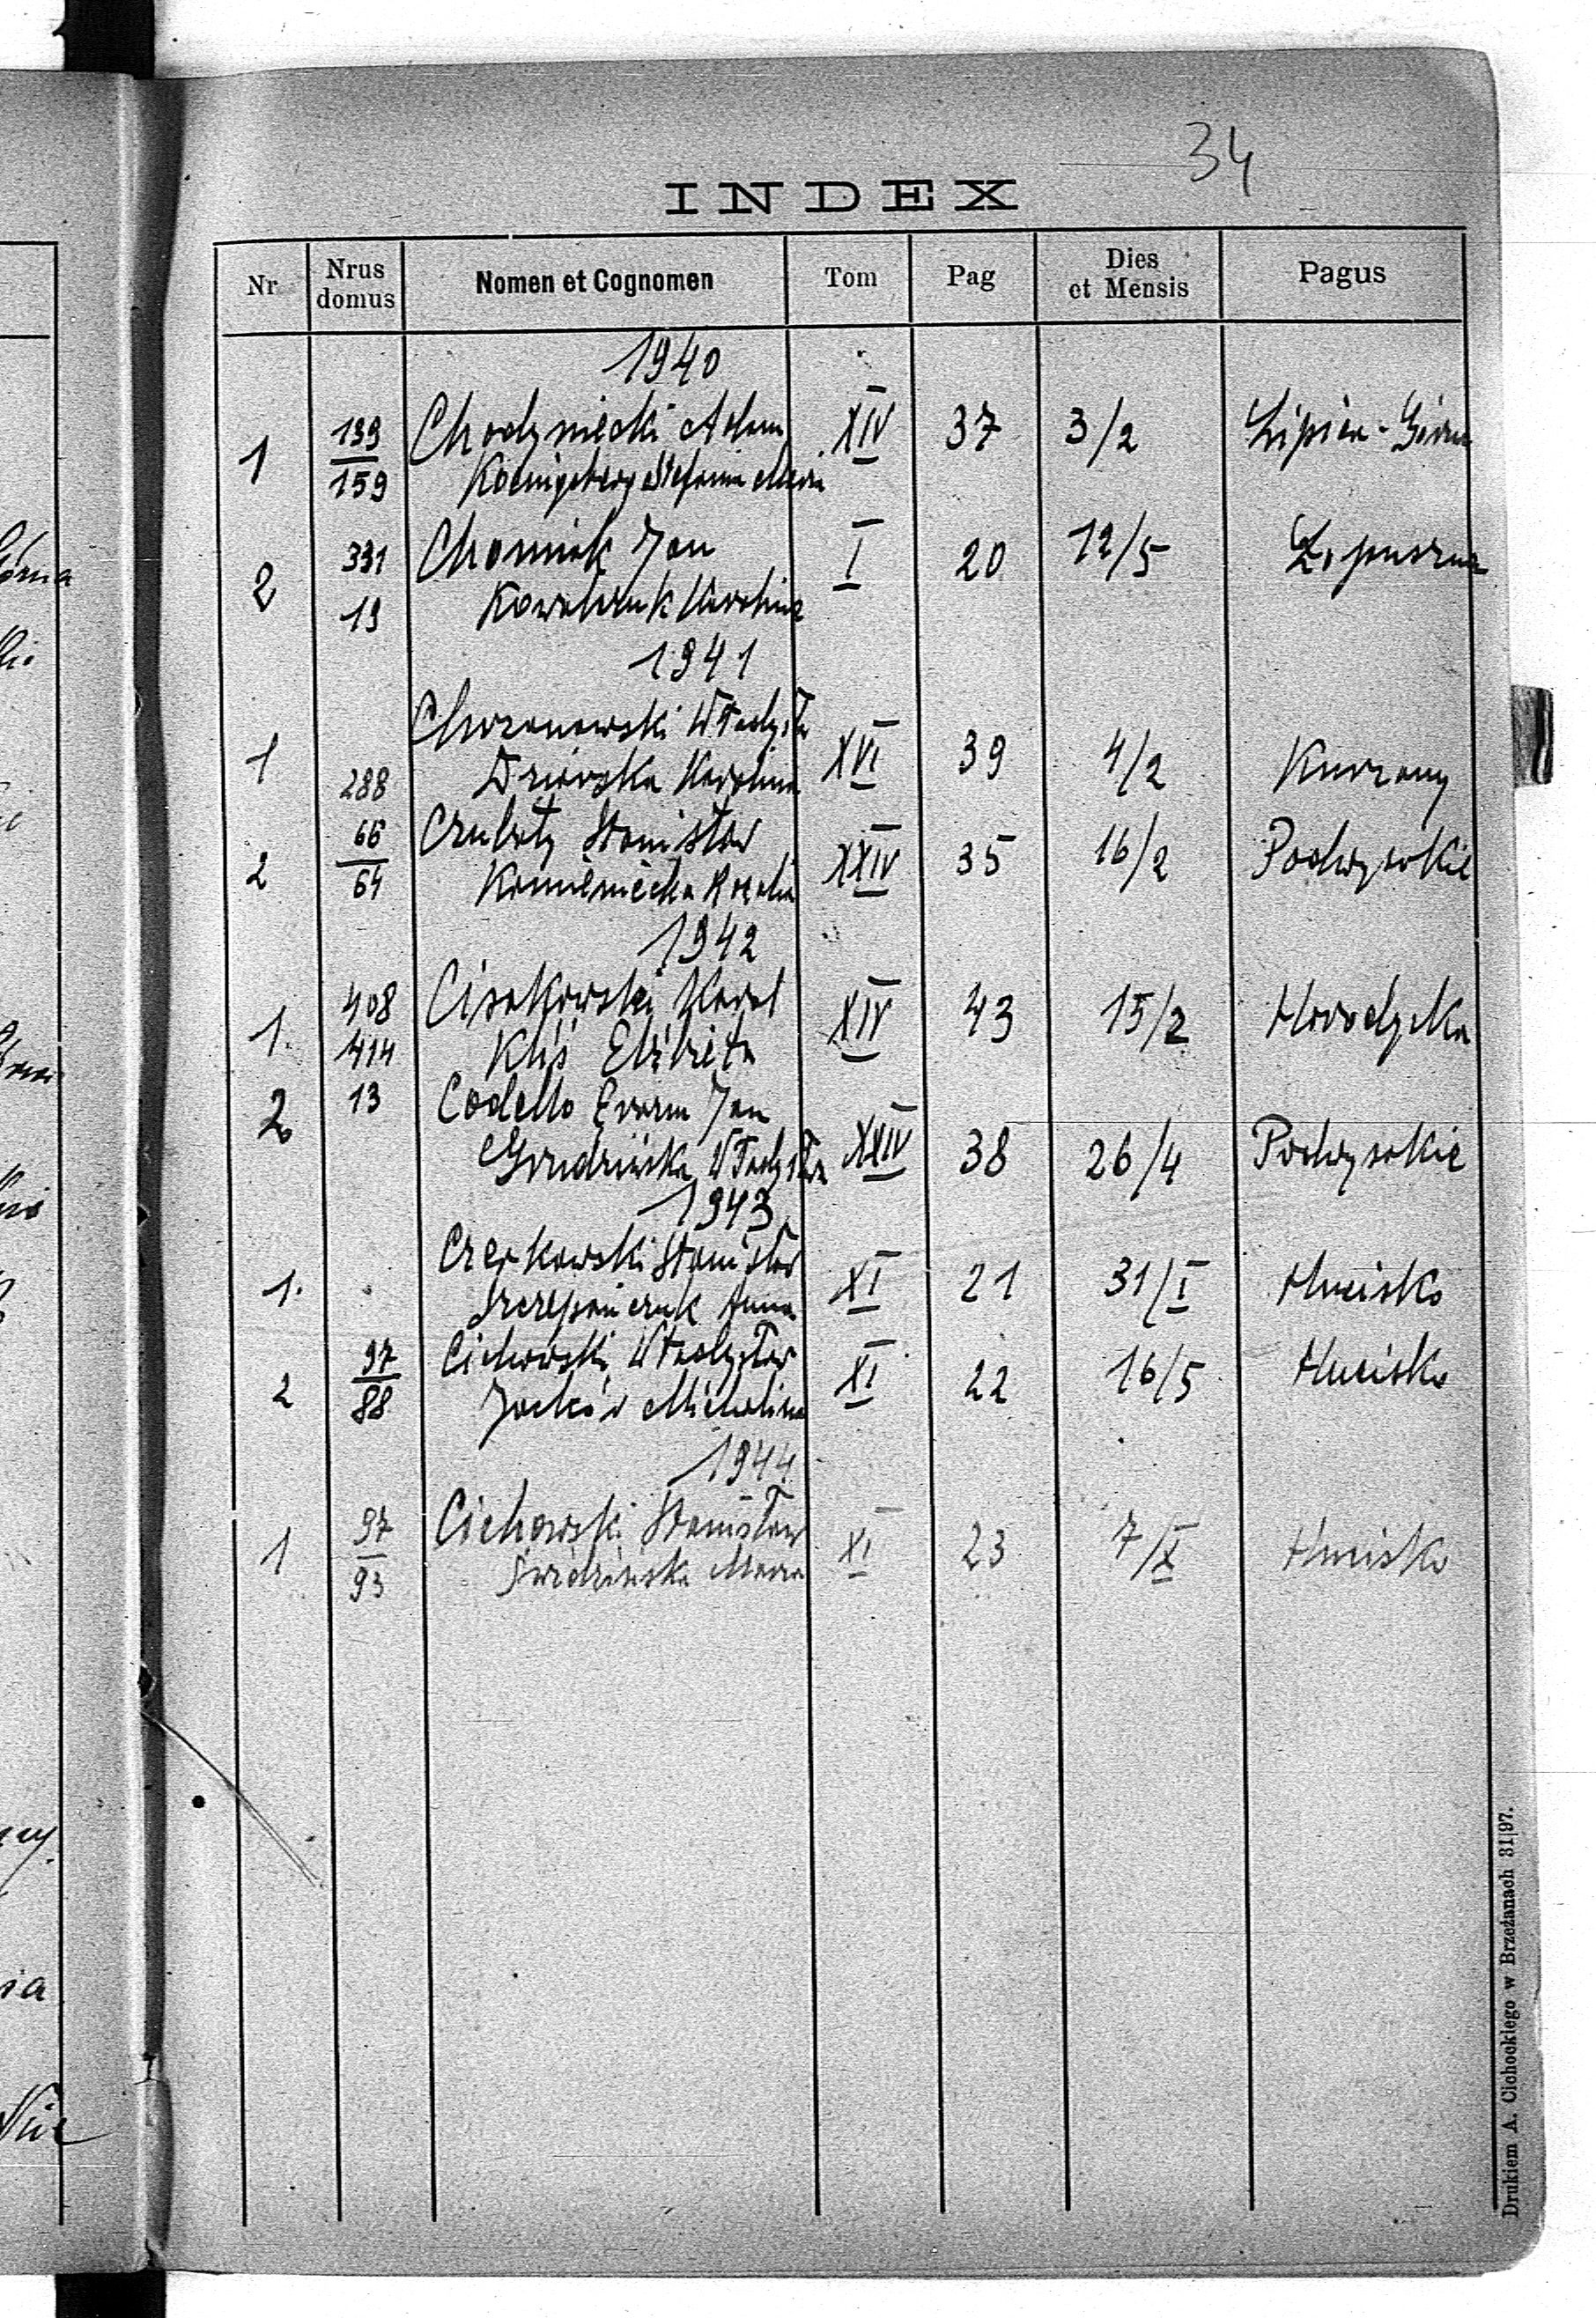 34
INDEX
Nr Nrus domus Nomen et Cognomen Tom Pag Dies et Mensis Pagus
1940
1 139 Chodyniecki Adam XIV 37 3/2 Lipica-Górna
159 Koenigsberg Stefania Maria
2 331 Chomiak Jan I 20 12/5 Łopuszna
19 Kowalczuk Karolina
1941
1 Chrzanowski Władysła XVI 39 4/2 Kurzany
288 Karolina
2 66 Czubaty Stanisław XXIV 35 16/2 Podwysokie
64 Kamieniecka Rozalia
1942
1. 408 Karol XIV 43 15/2 Horodyska
414 Kliś Elżbieta
2 13 Codello Jan XXIV 38 26/4 Podwysokie
Grudzińska Władysława
1943
1. Czerkowski Stanisław XI 21 31/I Hucisko
Anna
2 97 Cichowski Władysław XI 22 16/5 Hucisko
88 Jacków Michalina
1944
1 97 Cichowski Stanisław XI 23 7/X Hucisko
93 Maria
Drukiem A. Cichockiego w Brzeżanach 31|97.